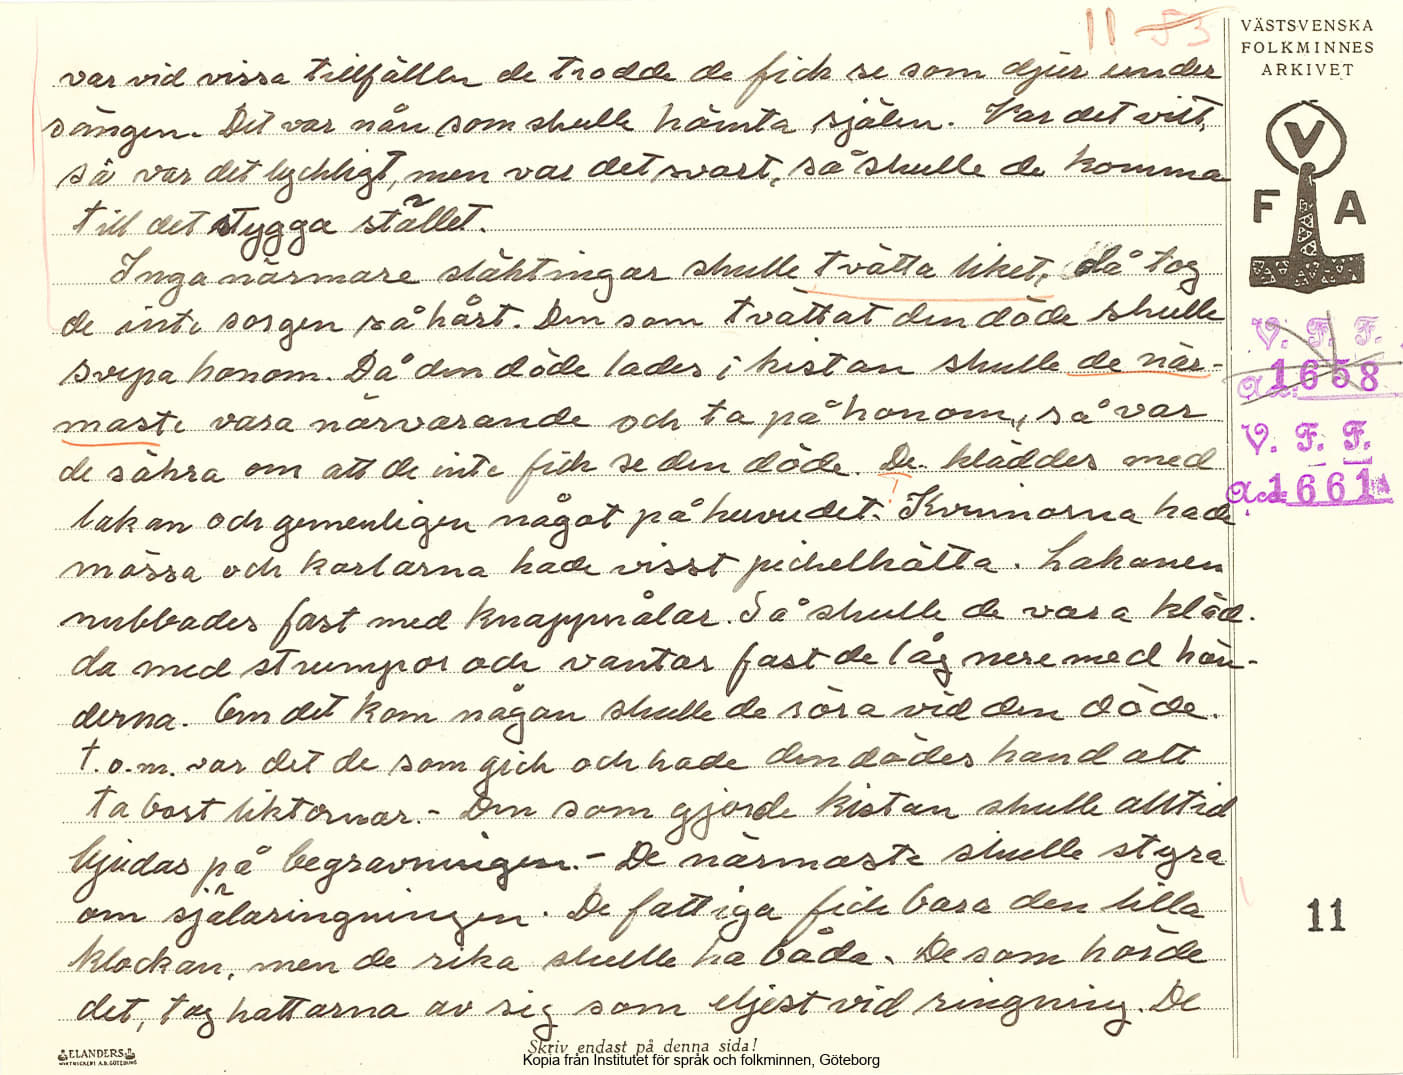 11 53
VÄSTSVENSKA
FOLKMINNES
ARKIVET
var vid vissa tillfällen de trodde de fick se som djur under
sängen. Det var nån som skulle hämta själen. Var det vitt,
så var det lyckligt, men var det svart, så skulle de komma
till det stygga stället.
Inga närmare släktingar skulle tvätta liket, då tog
de inte sorgen så hårt. Den som tvättat den döde skulle
svepa honom. Då den döde lades i kistan skulle de när-
maste vara närvarande och ta på honom, så var
de säkra om att de inte fick se den döde. De klåddes med
lakan och gemenligen något på huvudet. Kvinnorna hade
mössa och karlarna hade visst pickelhätta. Lakanen
nubbades fast med knappnålar. Så skulle de vara kläd-
da med strumpor och vantar fast de låg nere med hän-
derna. Om det kom någon skulle de röra vid den döde.
t.o.m. var det de som gick och hade den dödes hand att
ta bort liktornar. - Den som gjorde kistan skulle alltid
bjudas på begravningen. - De närmaste skulle styra
om själaringningen. De fattiga fick bara den lilla
klockan, men de rika skulle ha båda. De som hörde
det, tog hattarna av sig som eljest vid ringning. De
V
F A
V. F. F.
1658
V. F. F.
Acc. 1661
11
ELANDERS
BOKTRYCKERI A.B. GÖTEBORG
Skriv endast på denna sida!
Kopia från Institutet för språk och folkminnen, Göteborg